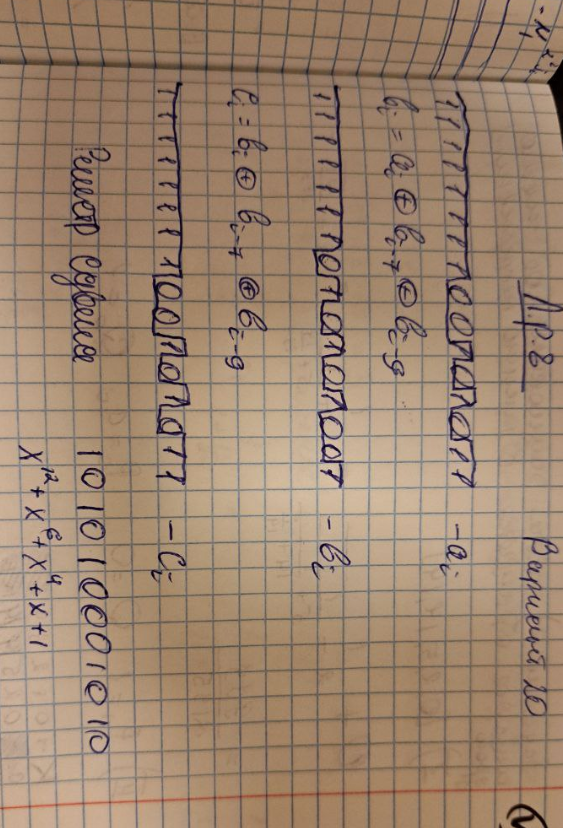 Л.р. 8 Вариант 20
1111111100101011 - aᵢ
bᵢ = aᵢ ⊕ bᵢ₋₇ ⊕ bᵢ₋₉
1111111010101001 - bᵢ
cᵢ = bᵢ ⊕ bᵢ₋₇ ⊕ bᵢ₋₉
1111111100101011 - cᵢ
Регистр сдвига 101010001010
x¹² + x⁶ + x⁴ + x + 1